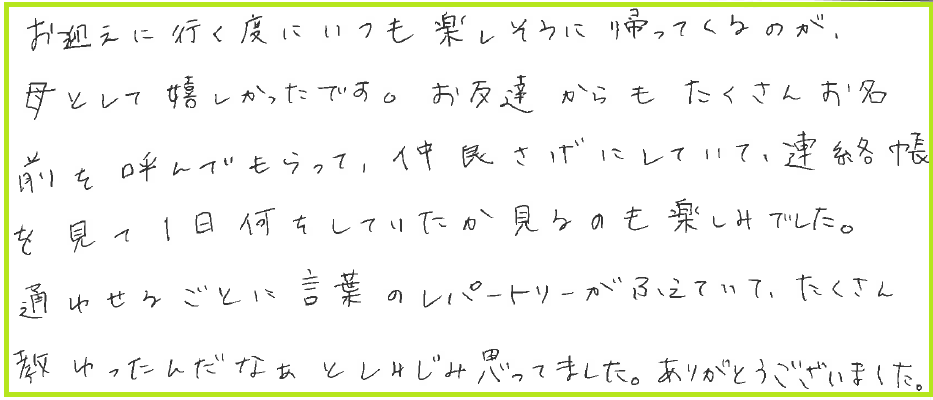 お迎えに行く度にいつも楽しそうに帰ってくるのが、
母として嬉しかったです。お友達からもたくさんお名
前を呼んでもらって、仲良さげにしていて、連絡帳
を見て1日何をしていたか見るのも楽しみでした。
通わせるごとに言葉のレパートリーがふえていて、たくさん
教わったんだなぁとしみじみ思ってました。ありがとうございました。